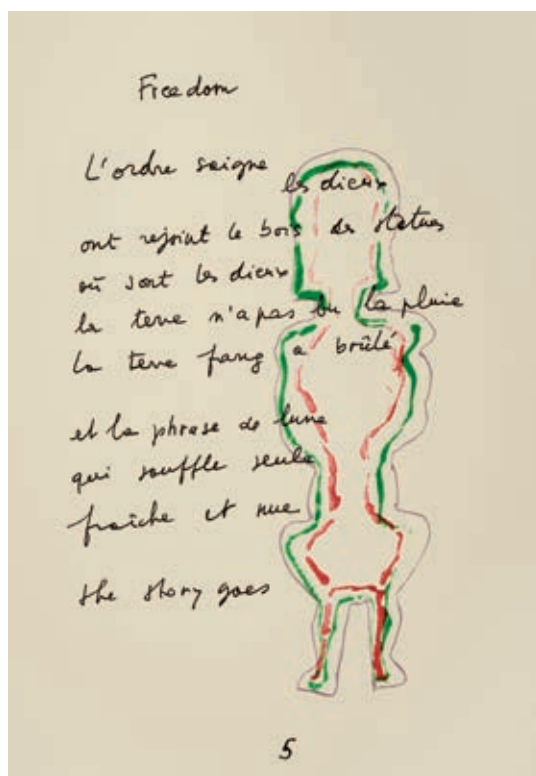 Freedom
L'ordre saigne
les dieux
ont rejoint le bois des statues
où sont les dieux
la terre n'a pas bu la pluie
la terre fang a brûlé
et la phrase de lune
qui souffle seule
fraîche et nue
the story goes
5